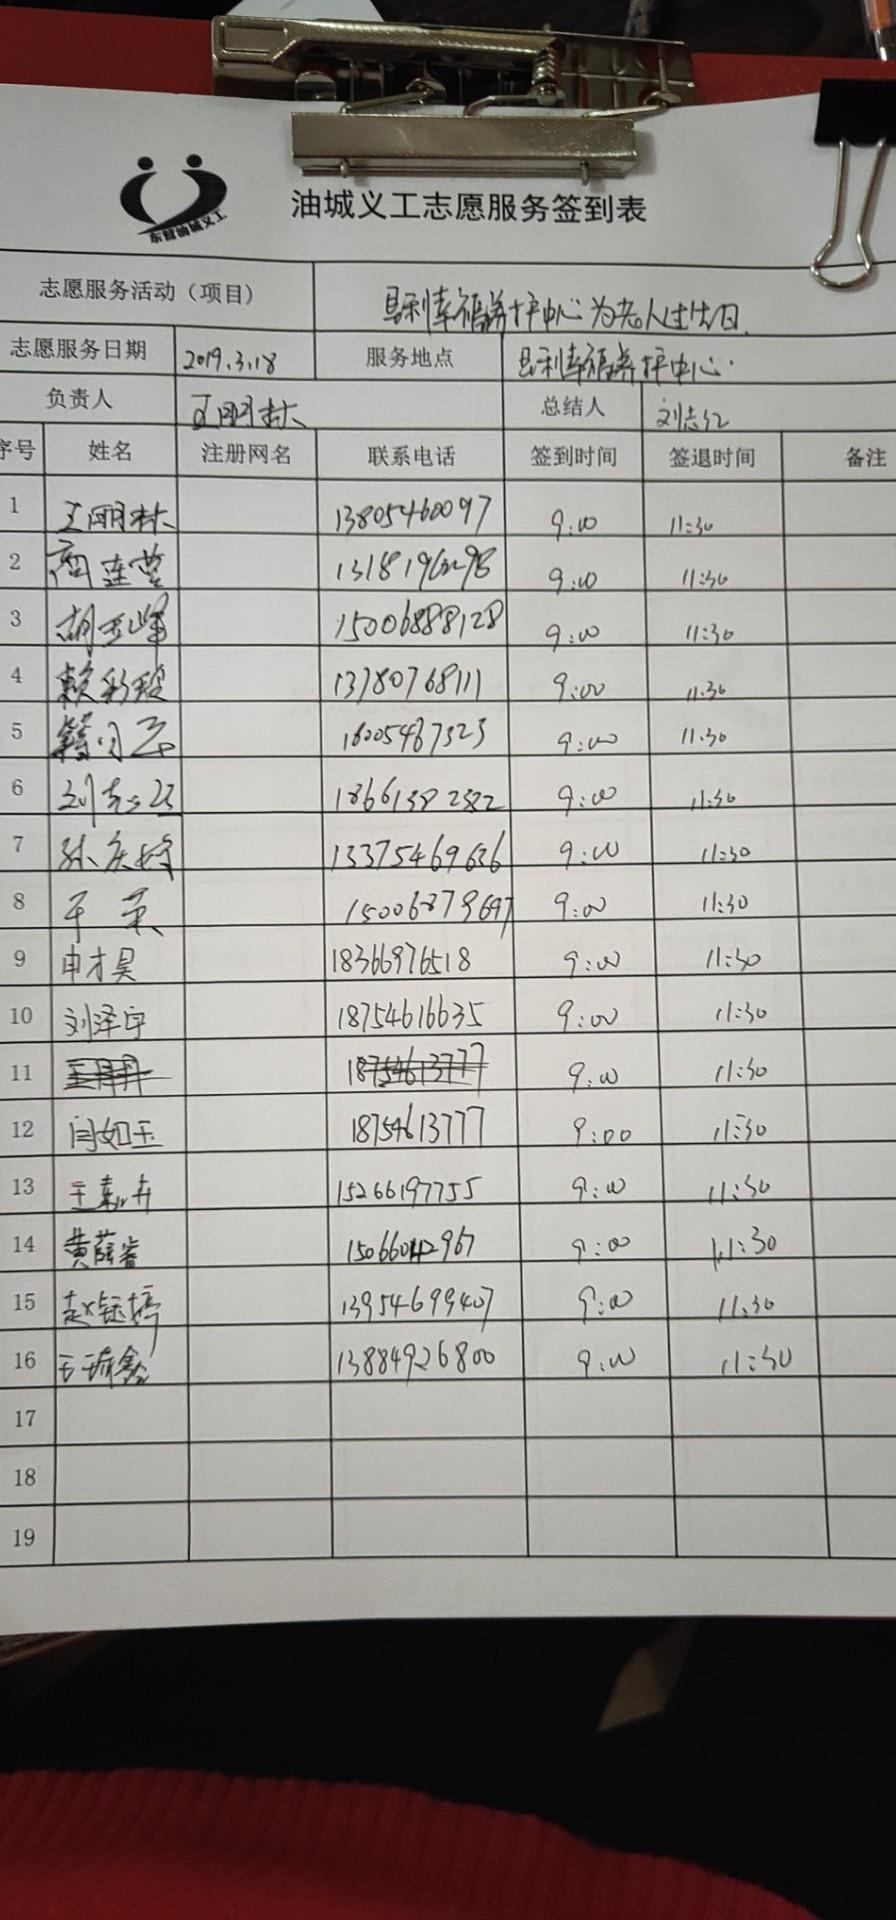 东营油城义工
油城义工志愿服务签到表
志愿服务活动（项目） 垦利幸福养护中心为老人过生日
志愿服务日期 2019.3.18 服务地点 垦利幸福养护中心
负责人 王明林 总结人 刘志红
序号 姓名 注册网名 联系电话 签到时间 签退时间 备注
1 王明林 13805460097 9:00 11:30
2 商连营 9:00 11:30
3 胡玉峰 15006888128 9:00 11:30
4 13780768111 9:00 11.30
5 9:00 11.30
6 18661382522 9:00 11:30
7 孙庆婷 13375469636 9:00 11:30
8 15006879697 9:00 11:30
9 申才昊 18366976518 9:00 11:30
10 刘泽宇 18754616635 9:00 11:30
11 18754613777 9:00 11:30
12 闫如玉 18754613777 9:00 11:30
13 15266197755 9:00 11:30
14 黄薛睿 9:00 11:30
15 赵钰婷 13954699407 9:00 11:30
16 13884926800 9:00 11:30
17
18
19